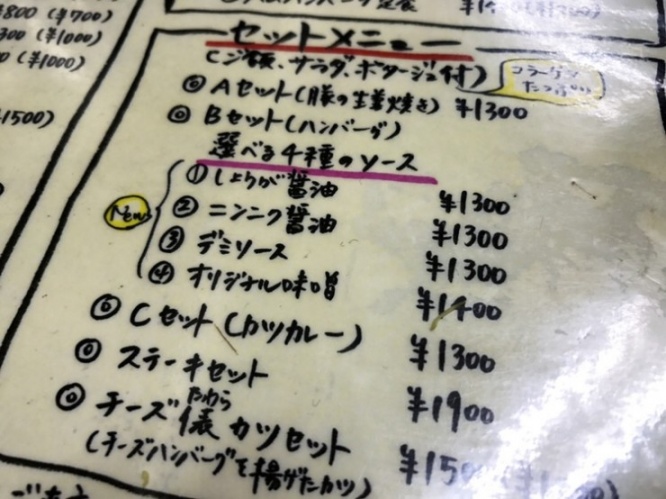 800 (¥700)
300 (¥1000)
(¥1000)
¥1500)
セットメニュー
(ご飯、サラダ、ポタージュ付)
コラーゲン
たっぷり
◎ Aセット(豚の生姜焼き) ¥1300
◎ Bセット(ハンバーグ)
選べる4種のソース
New
① しょうが醤油 ¥1300
② ニンニク醤油 ¥1300
③ デミソース ¥1300
④ オリジナル味噌 ¥1400
◎ Cセット(カツカレー) ¥1300
◎ ステーキセット ¥1900
◎ チーズ俵カツセット ¥150
たわら
(チーズハンバーグを揚げたカツ)